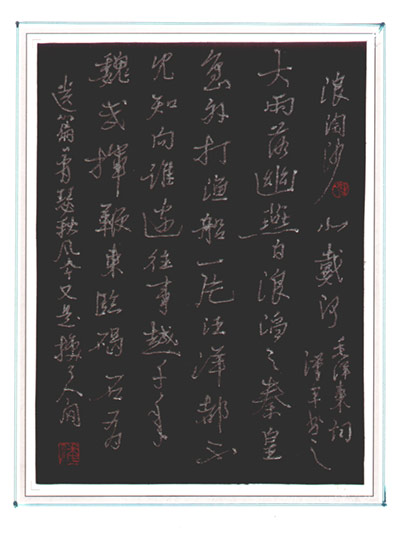 浪淘沙 北戴河 毛泽東词
书之
大雨落幽燕白浪滔々秦皇
岛外打渔船一片汪洋都不
见知向谁边往事越千年
魏武揮鞭東臨碣石有
遗篇萧瑟秋风今又是换了人间